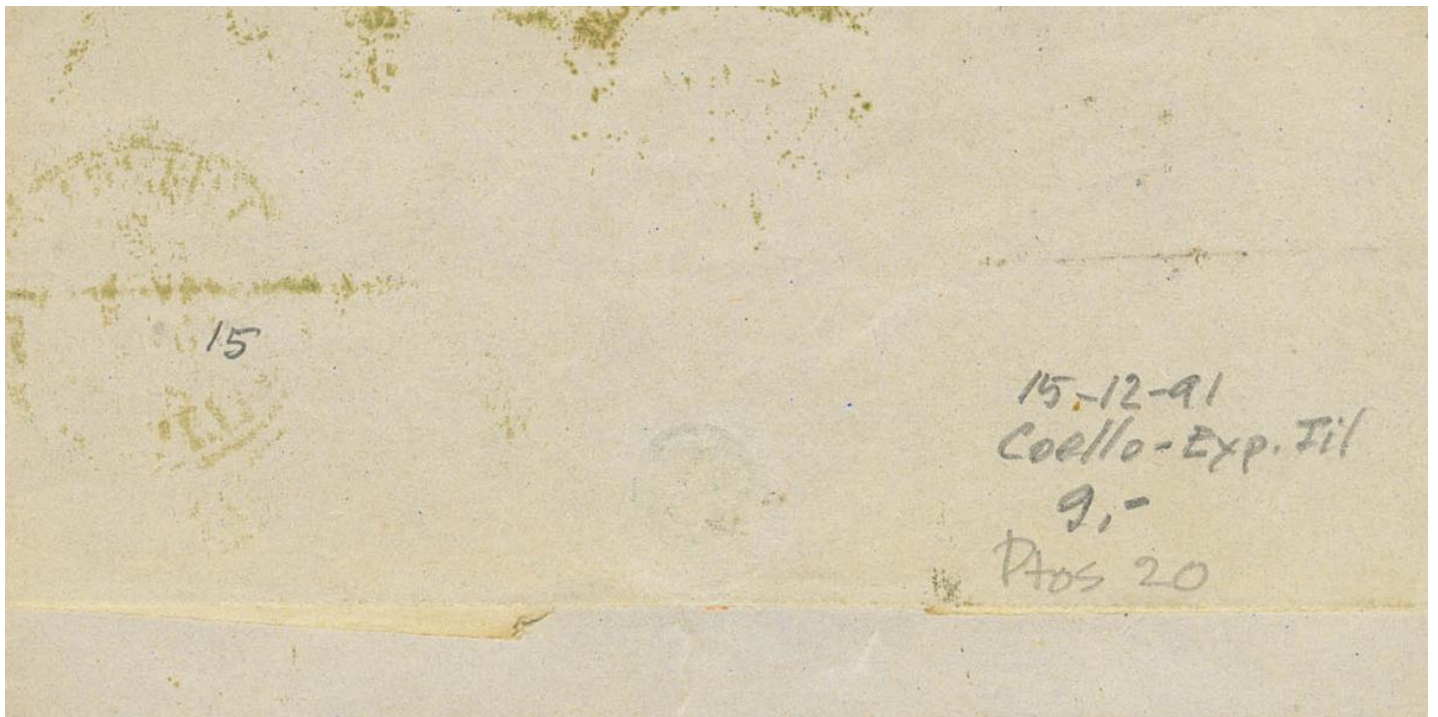 15
15-12-91
Coello-Exp. Fil
9,-
Ptos 20